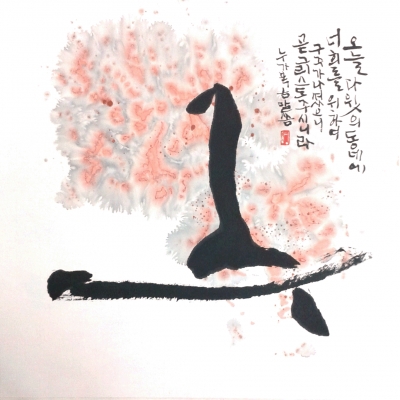 오늘 다윗의 동네에
너희를 위하여
구주가 나셨으니
곧 그리스도 주시니라
누가복음 말씀